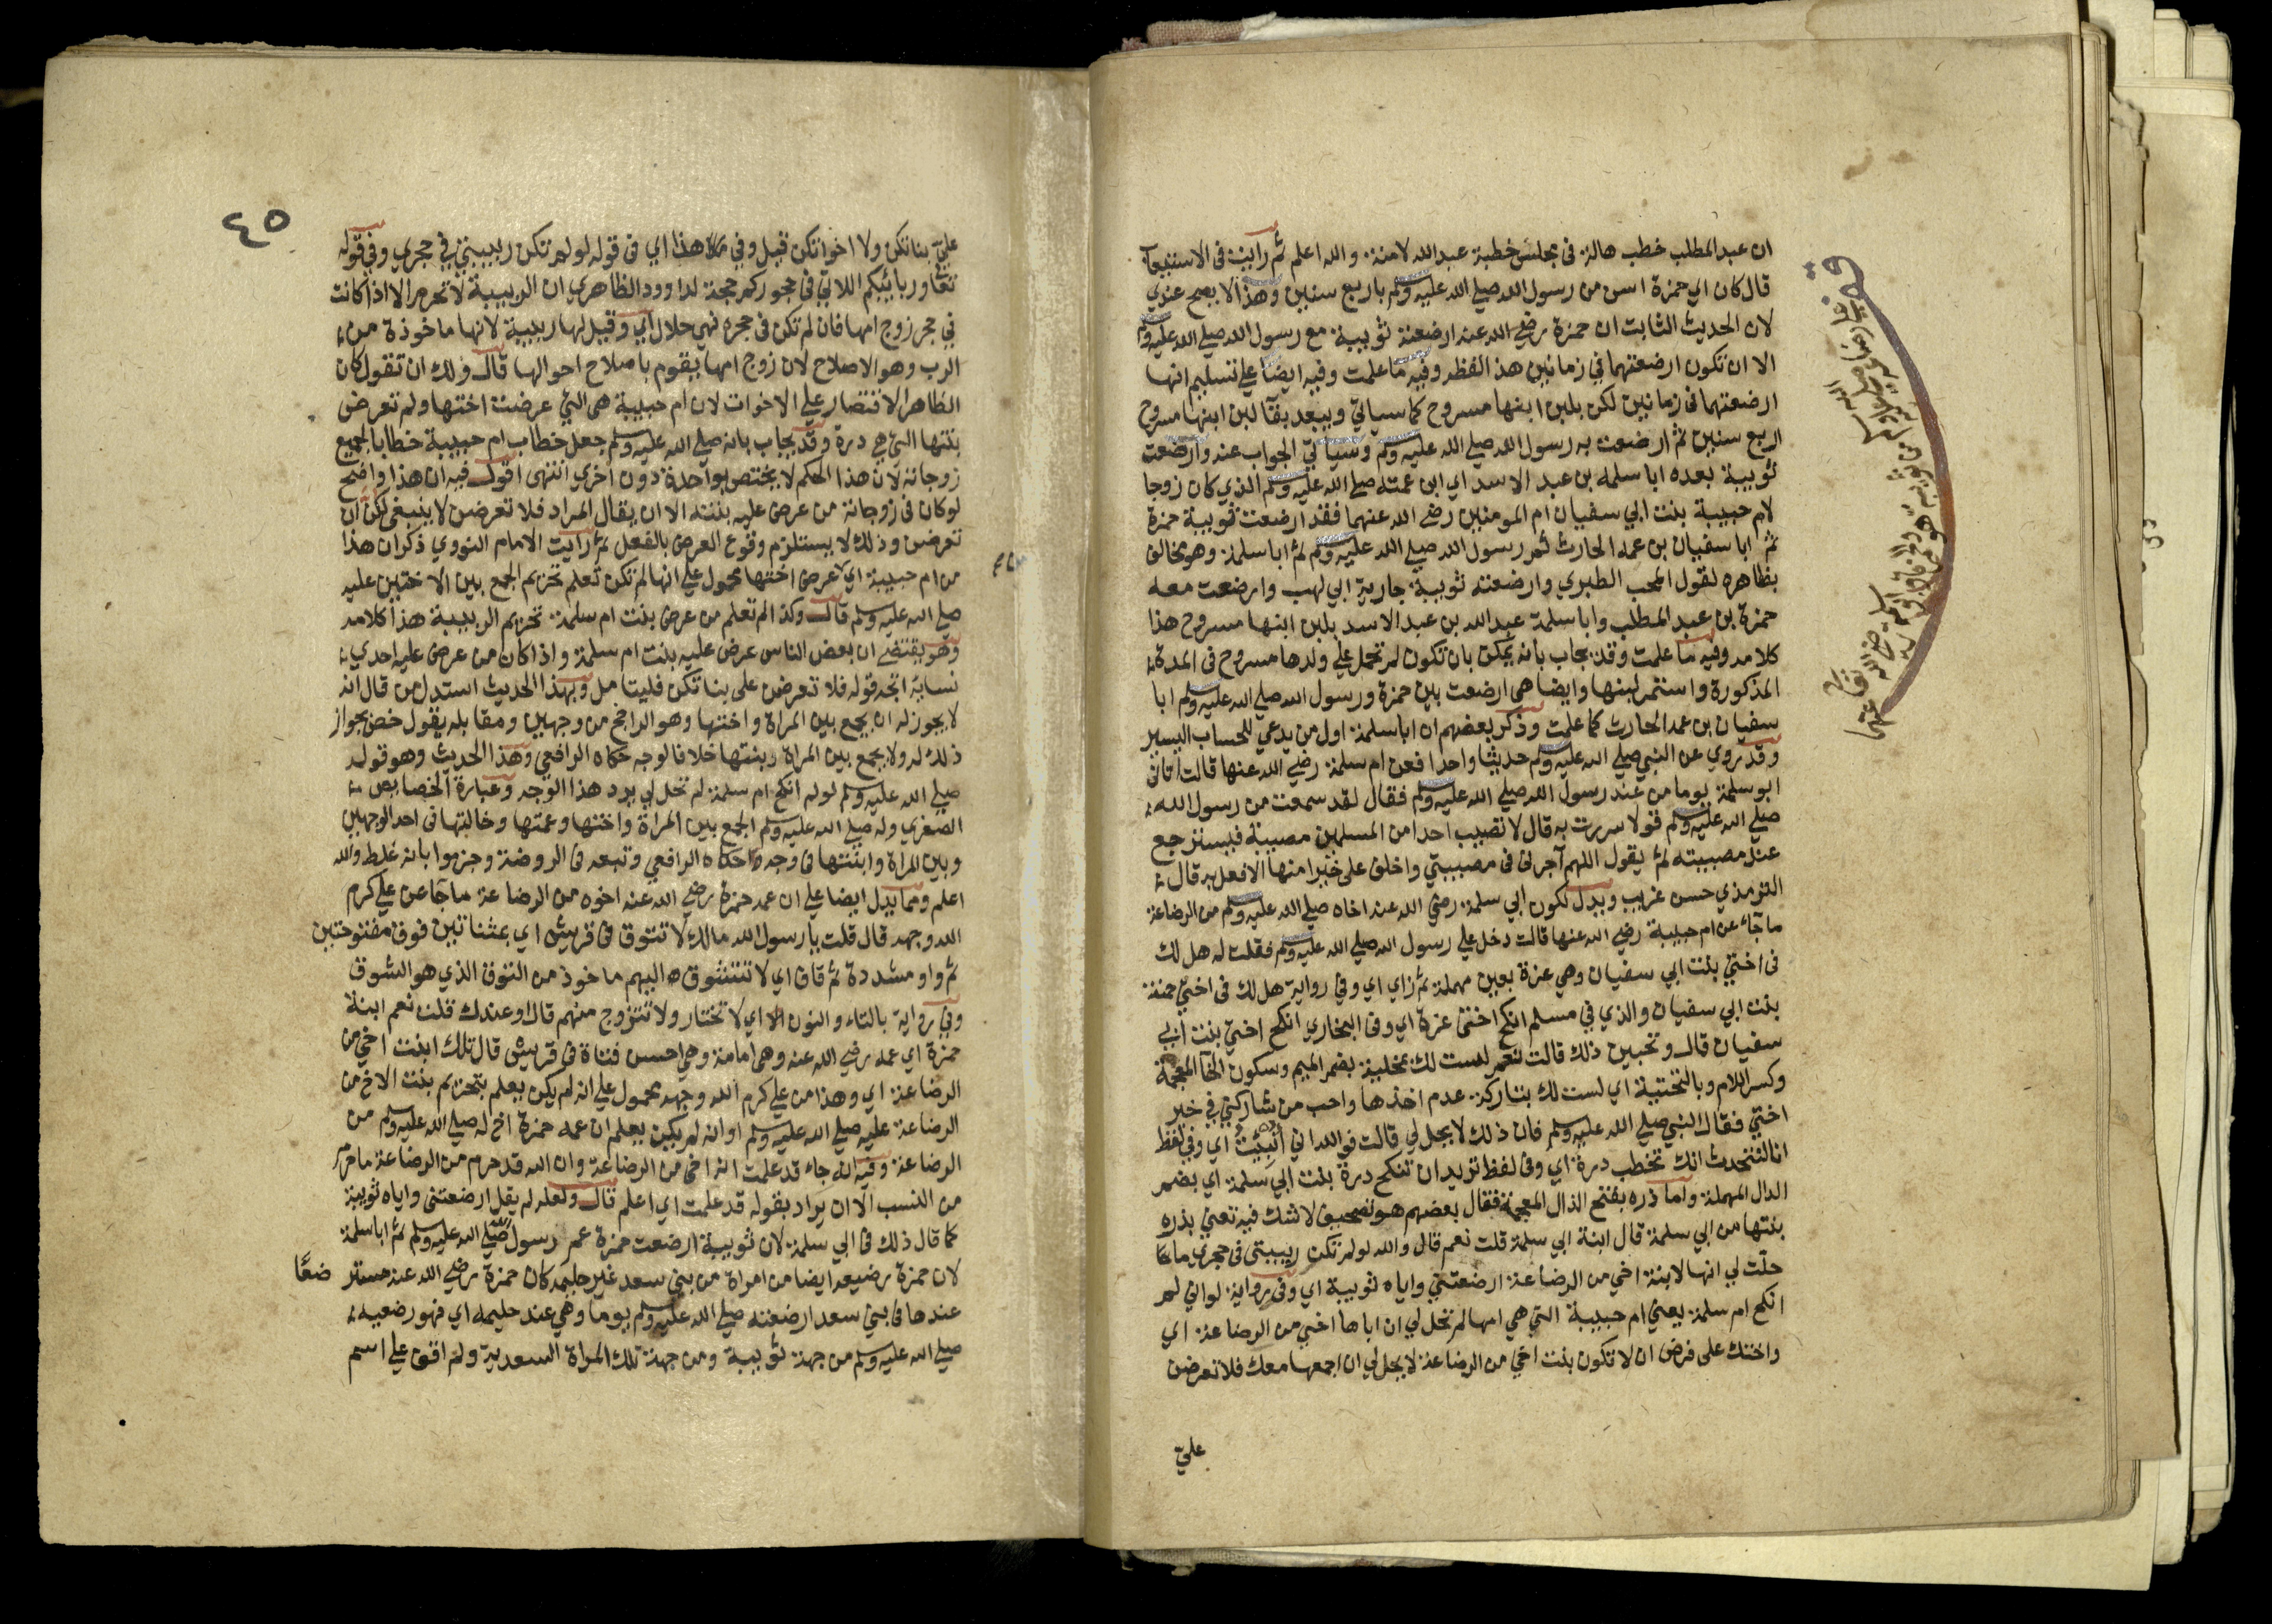 ان عبد المطلب خطب هالة في مجلس خطبة عبد الله لامنة والله اعلم ثم رايت في الاستيعاب
قال كان اي حمزة اسن من رسول الله صلى الله عليه وسلم باربع سنين وهذا لا يصح عندي
لان الحديث الثابت ان حمزة رضي الله عنه ارضعته ثويبة مع رسول الله صلى الله عليه وسلم
الا ان تكون ارضعتهما في زمانين هذا لفظه وفيه ما علمت وفيه ايضا على تسليم انها
ارضعتهما في زمانين لكن بلبن ابنها مسروح كما سياتي ويبعد بقا لبن ابنها مسروح
اربع سنين ثم ارضعت به رسول الله صلى الله عليه وسلم وسياتي الجواب عنه وارضعت
ثويبة بعده ابا سلمه بن عبد الاسد اي ابن عمته صلى الله عليه وسلم الذي كان زوجا
لام حبيبة بنت ابي سفيان ام المومنين رضي الله عنهما فقد ارضعت ثويبة حمزة
ثم ابا سفيان بن عمه الحارث ثم رسول الله صلى الله عليه وسلم ثم ابا سلمة وهو مخالف
بظاهره لقول المحب الطبري وارضعته ثويبة جارية ابي لهب وارضعت معه
حمزة بن عبد المطلب وابا سلمة عبد الله بن عبد الاسد بلبن ابنها مسروح هذا
كلامه وفيه ما علمت وقد يجاب بانه يمكن بان تكون لم تحمل على ولدها مسروح في المدة
المذكورة واستمر لبنها وايضا هي ارضعت بين حمزة ورسول الله صلى الله عليه وسلم ابا
سفيان بن عمه الحارث كما علمت وذكر بعضهم ان ابا سلمة اول من يدعي للحساب اليسير
وقد روي عن النبي صلى الله عليه وسلم حديثا واحدا فعن ام سلمة رضي الله عنها قالت اتاني
ابو سلمة يوما من عند رسول الله صلى الله عليه وسلم فقال لقد سمعت من رسول الله
صلى الله عليه وسلم قولا سررت به قال لا تصيب احدا من المسلمين مصيبة فيسترجع
عند مصيبته ثم يقول اللهم آجرني في مصيبتي واخلف على خيرا منها الا فعل به قال
الترمذي حسن غريب ويدل لكون ابي سلمة رضي الله عنه اخاه صلى الله عليه وسلم من الرضاعة
ما جاء عن ام حبيبة رضي الله عنها قالت دخل علي رسول الله صلى الله عليه وسلم فقلت له هل لك
في اختي بنت ابي سفيان وهي عزة بعين مهملة ثم زاي اي وفي رواية هل لك في اختي حمنة
بنت ابي سفيان والذي في مسلم انكح اختي عزة اي وفي البخاري انكح اختي بنت ابي
سفيان قال وتحبين ذلك قالت نعم لست لك بمخلية بضم الميم وسكون الخا المعجمة
وكسر اللام وبالتحتية اي لست لك بتاركة عدم اخذها واحب من شاركني في خير
اختي فقال النبي صلى الله عليه وسلم فان ذلك لا يحل لي قالت فوالله اني أنبئت اي وفي لفظ
انا لنتحدث انك تخطب درة اي وفي لفظ تريد ان تنكح درة بنت ابي سلمة اي بضم
الدال المهملة واما ذره بفتح الذال المعجمة فقال بعضهم هو تصحيف لا شك فيه تعني بذره
بنتها من ابي سلمة قال ابنة ابي سلمة قلت نعم قال والله لو لم تكن ربيبتي في حجري ما
حلت لي انها لابنة اخي من الرضاعة ارضعتني واياه ثويبة اي وفي رواية لو اني لم
انكح ام سلمة يعني ام حبيبة التي هي امها لم تحل لي ان اباها اخي من الرضاعة اي
واختك على فرض ان لا تكون بنت اخي من الرضاعة لا يحل لي ان اجمعها معك فلا تعرضن
علي
٤٥
علي بناتكن ولا اخواتكن قيل وفي هذا اي في قوله لو لم تكن ربيبتي في حجري وفي قوله
تعا وربائبكم اللاتي في حجوركم حجة لداوود الظاهري ان الربيبة لا تحرم الا اذا كانت
في حجر زوج امها فان لم تكن في حجره فهي حلال اي وقيل لها ربيبة لانها ماخوذة من
الرب وهو الاصلاح لان زوج امها يقوم باصلاح احوالها قال ولك ان تقول كان
الظاهر الاقتصار على الاخوات لان ام حبيبة هي التي عرضت اختها ولم تعرض
بنتها التي هي درة وقد يجاب بانه صلى الله عليه وسلم جعل خطاب ام حبيبة خطابا لجميع
زوجاته لان هذا الحكم لا يختص بواحدة دون اخرى انتهى اقول فيه ان هذا واضح
لو كان في زوجاته من عرض عليه بنته الا ان يقال المراد فلا تعرضن لا ينبغي لكن ان
تعرضن وذلك لا يستلزم وقوع العرض بالفعل ثم رايت الامام النووي ذكر ان هذا
من ام حبيبة اي عرض اختها محمول على انها لم تكن تعلم تحريم الجمع بين الاختين عليه
صلى الله عليه وسلم قال وكذا لم تعلم من عرض بنت ام سلمة تحريم الربيبة هذا كلامه
وهو يقتضي ان بعض الناس عرض عليه بنت ام سلمة واذا كان من عرض عليه احدى
نسايه اتجه قوله فلا تعرضن على بناتكن فليتامل وبهذا الحديث استدل من قال انه
لا يجوز له ان يجمع بين المراة واختها وهو الراجح من وجهين ومقابله يقول خص بجواز
ذلك له ولا يجمع بين المراة وبنتها خلافا لوجه حكاه الرافعي وهذا الحديث وهو قوله
صلى الله عليه وسلم لو لم انكح ام سلمة لم تحل لي يرد هذا الوجه وعبارة الخصايص
الصغرى وله صلى الله عليه وسلم الجمع بين المراة واختها وعمتها وخالتها في احد الوجهين
وبين المراة وابنتها في وجه حكاه الرافعي وتبعه في الروضة وجزموا بانه غلط والله
اعلم ومما يدل ايضا على ان عمه حمزة رضي الله عنه اخوه من الرضاعة ما جاعن علي كرم
الله وجهه قال قلت يا رسول الله مالك لا تتوق في قريش اي بمثناتين فوق مفتوحتين
ثم واو مشددة ثم قاف اي لا تتشوق اليهم ماخوذ من التوق الذي هو الشوق
وفي رواية بالتاء والنون اي لا تختار ولا تتزوج منهم قال اوعندك قلت نعم ابنة
حمزة اي عمه رضي الله عنه وهي امامة وهي احسن فتاة في قريش قال تلك ابنت اخي من
الرضاعة اي وهذا من علي كرم الله وجهه محمول على انه لم يكن يعلم بتحريم بنت الاخ من
الرضاعة عليه صلى الله عليه وسلم او انه لم يكن يعلم ان عمه حمزة اخ له صلى الله عليه وسلم من
الرضاعة وفيه انه جاء قد علمت انه اخي من الرضاعة وان الله قد حرم من الرضاعة ما حرم
من النسب الا ان يراد بقوله قد علمت اي اعلم قال ولعله لم يقل ارضعتني واياه ثويبة
كما قال ذلك في ابي سلمة لان ثويبة ارضعت حمزة عم رسول صلى الله عليه وسلم ثم ابا سلمة
لان حمزة رضيعه ايضا من امراة من بني سعد غير حليمه كان حمزة رضي الله عنه مسترضعًا
عندها في بني سعد ارضعته صلى الله عليه وسلم يوما وهي عند حليمه اي فهو رضيعه
صلى الله عليه وسلم من جهة ثويبة ومن جهة تلك المراة السعدية ولم اقف على اسم